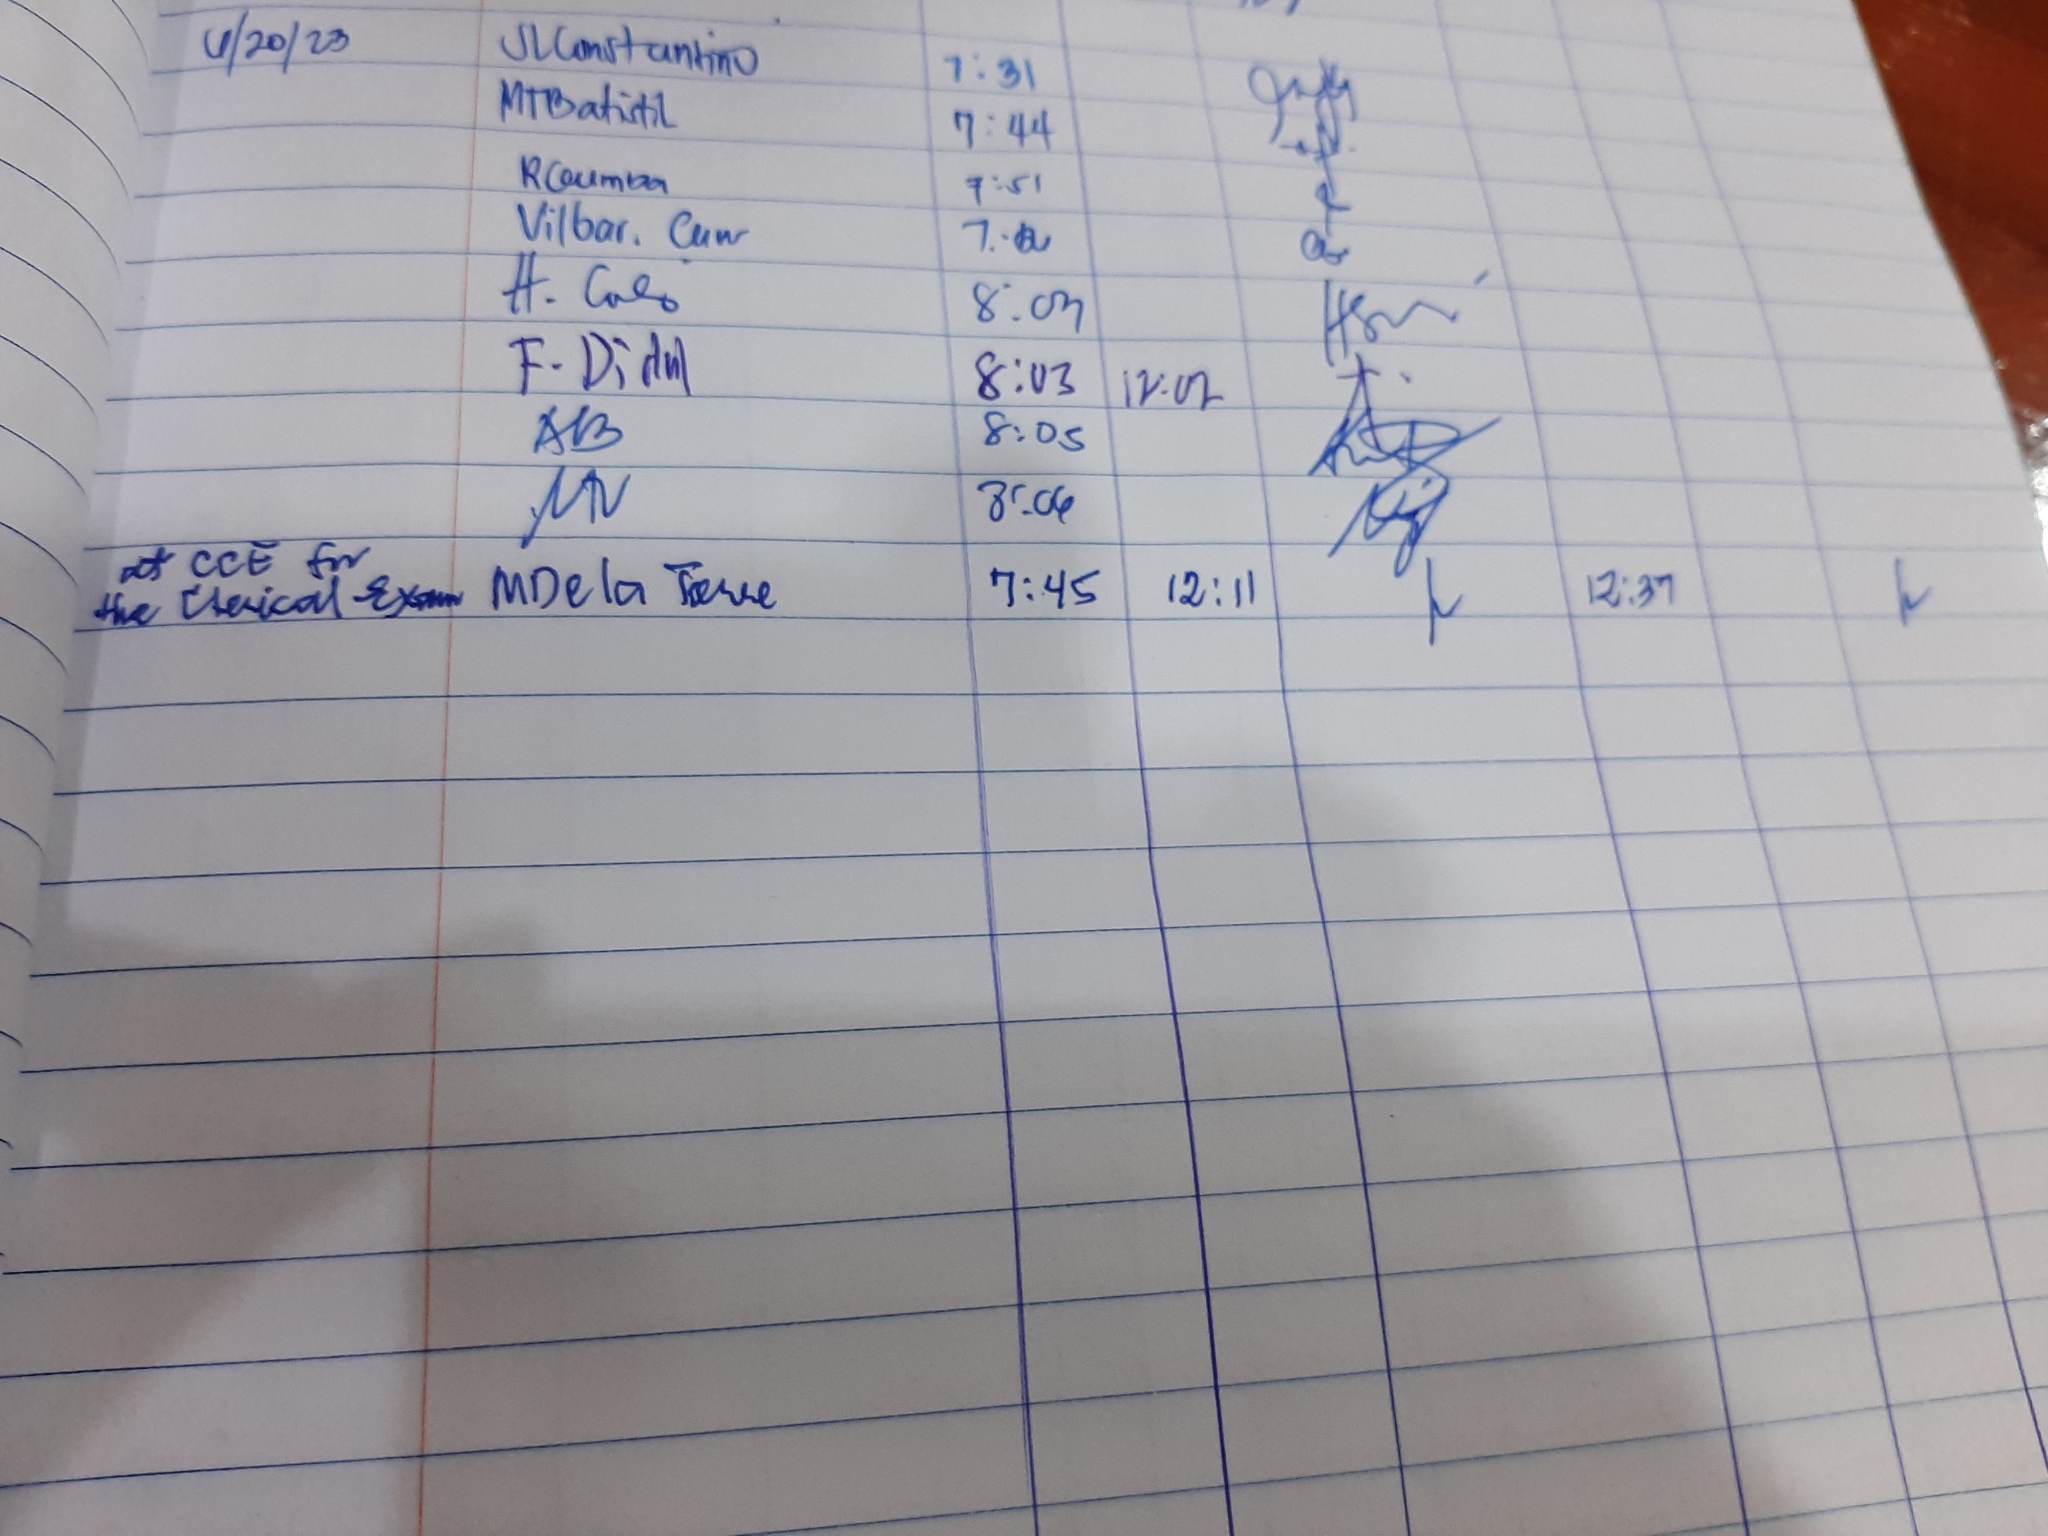 6/20/23 JLConstantino 7:31
MTBatistil 7:44
7:51
Vilbar. 7:
H. 8:03
F. Didul 8:03 12:02
AB 8:05
MV 8:06
at CCE for
the Clerical Exam MDela Torre 7:45 12:11 12:37